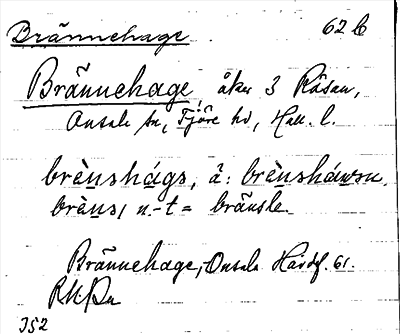 Brännehage 62 b
Brännehage åker 3 Råsan,
Onsala sn, Fjäre hd, Hall. l.
brènshágs, å: brènsháwsn.
brèns, n. -t = bränsle.
Brännehage, Onsala Härdf. 61.
352